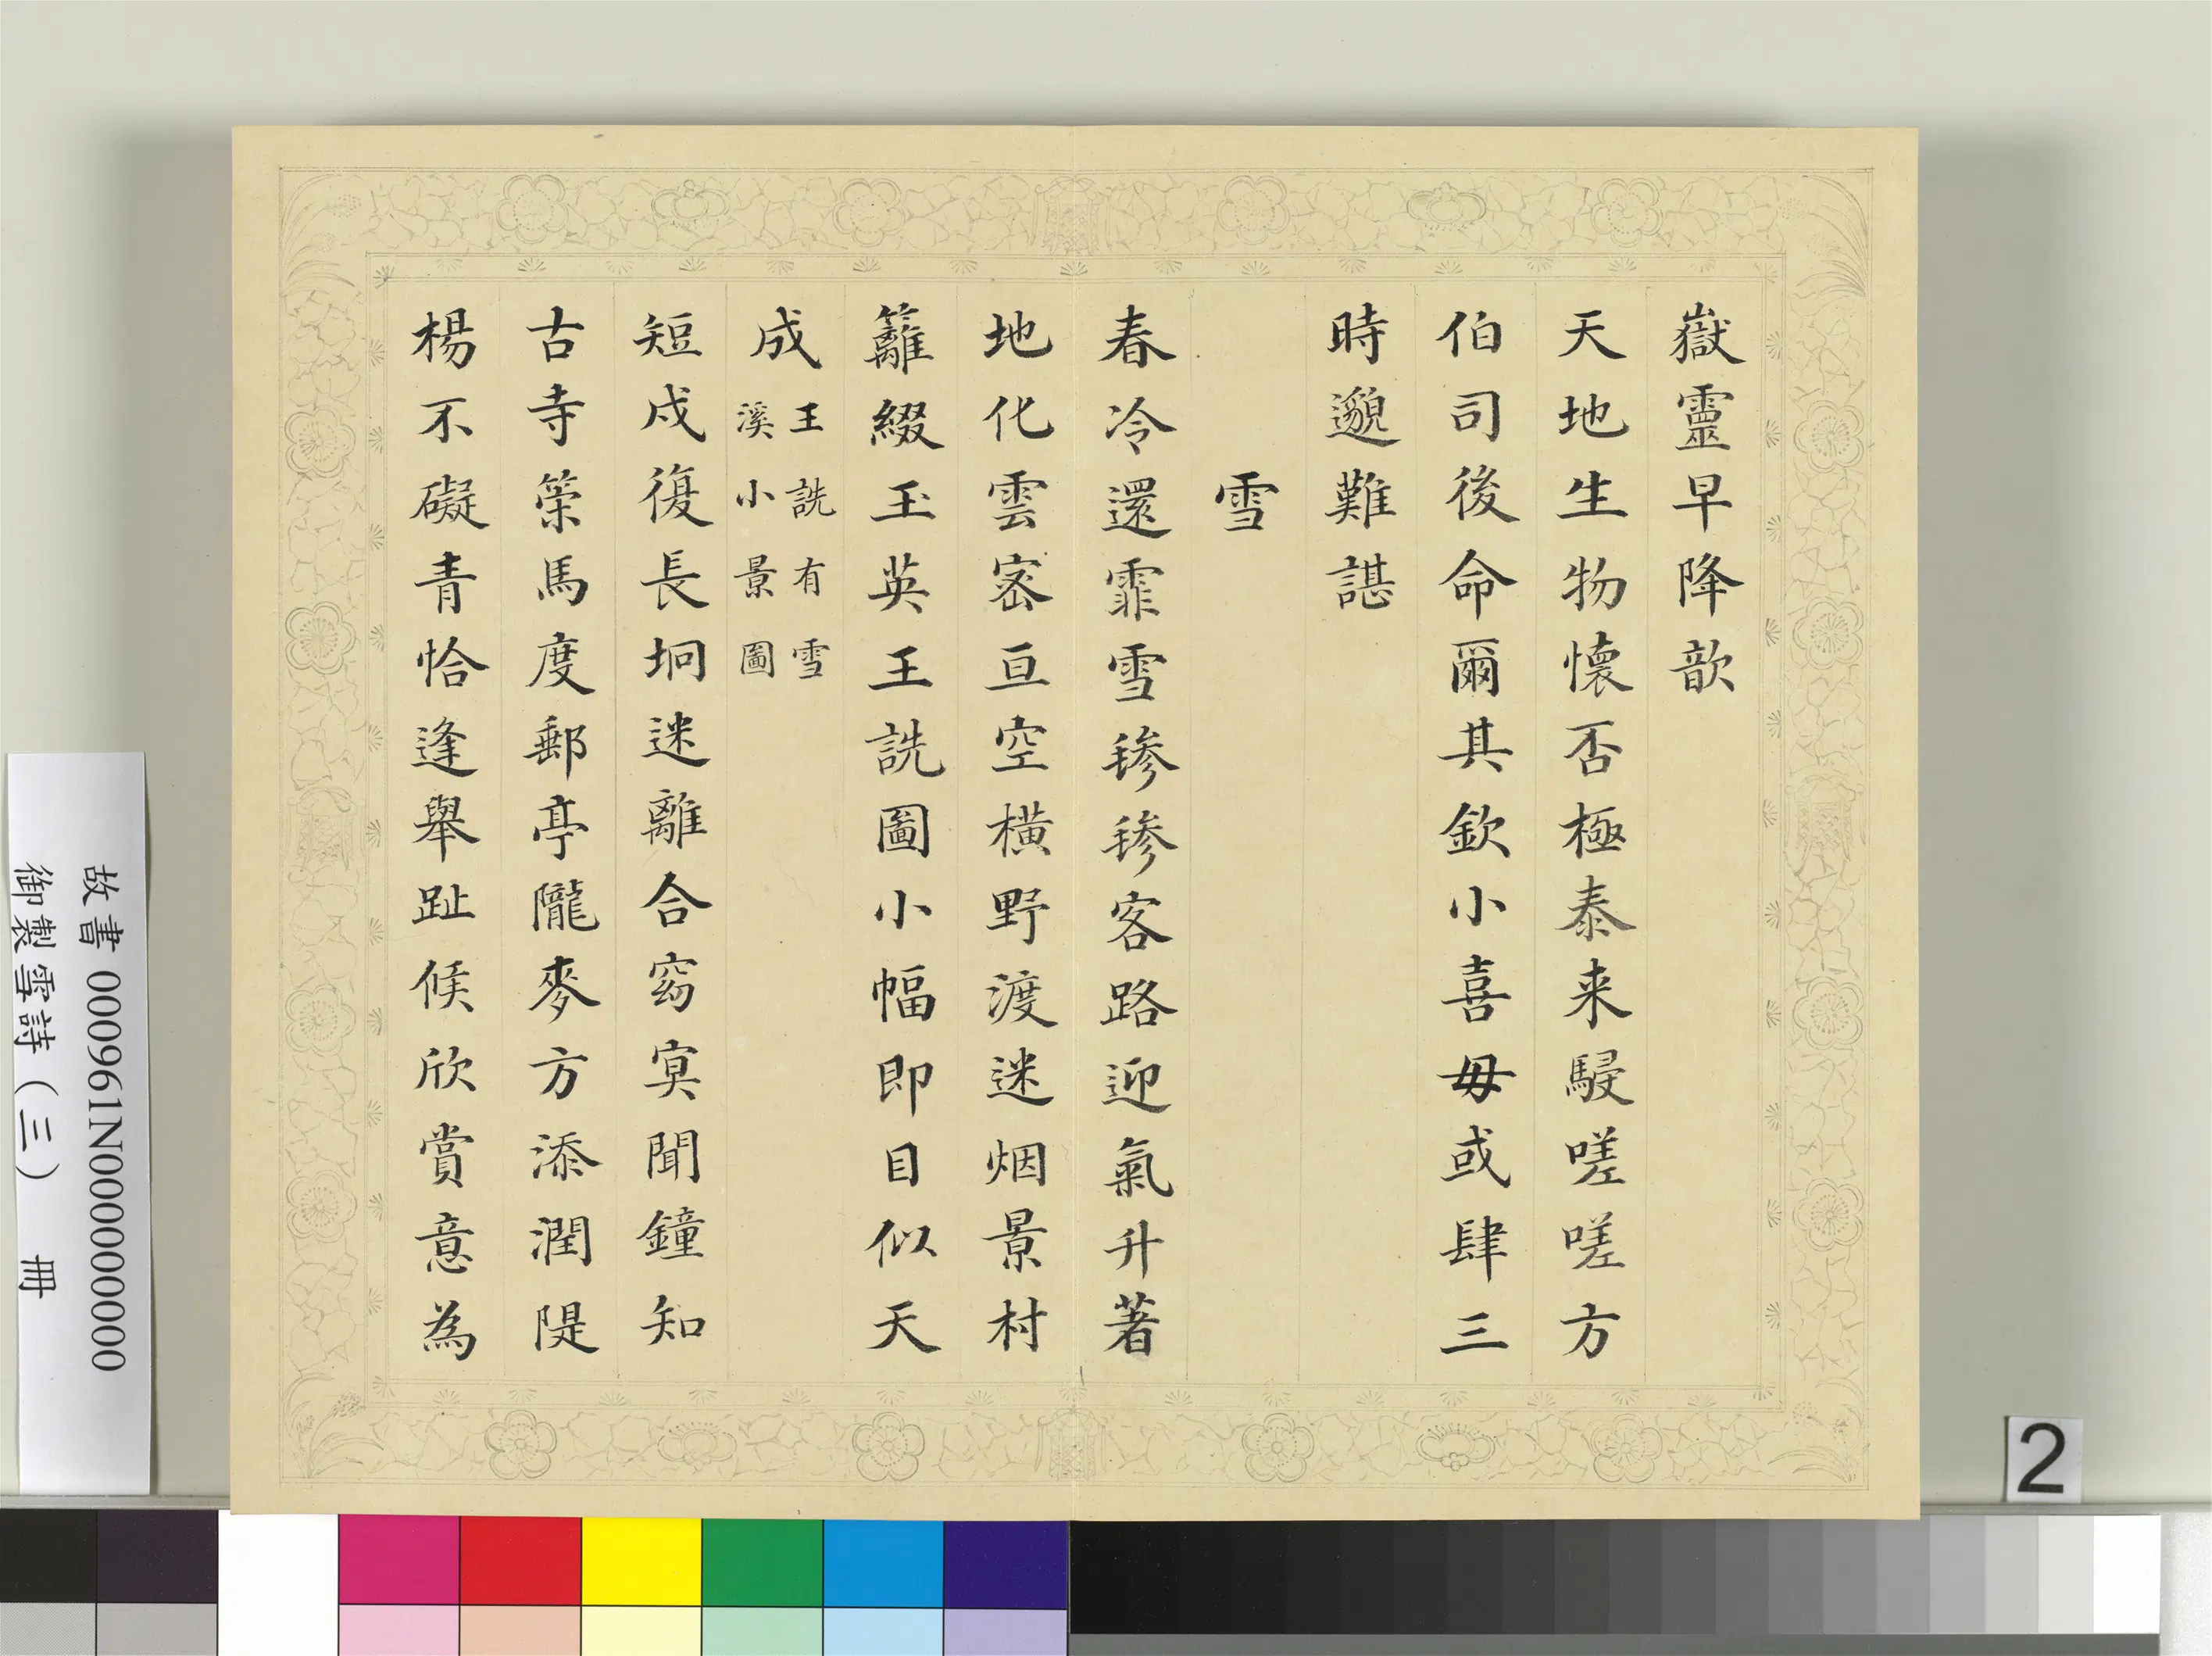 嶽靈早降歆
天地生物懷否極泰来騴嗟嗟方
伯司後命爾其欽小喜毋或肆三
時邈難諶
雪
春冷還霏雪毶毶客路迎氣升著
地化雲密亘空橫野渡迷烟景村
籬綴玉英王詵圖小幅即目似天
成王詵有雪
溪小景圖
短戍復長坰迷離合窈冥聞鐘知
古寺策馬度郵亭隴麥方添潤隄
楊不礙青恰逢舉趾候欣賞意為
故書 000961N000000000
御製雪詩（三） 冊
2